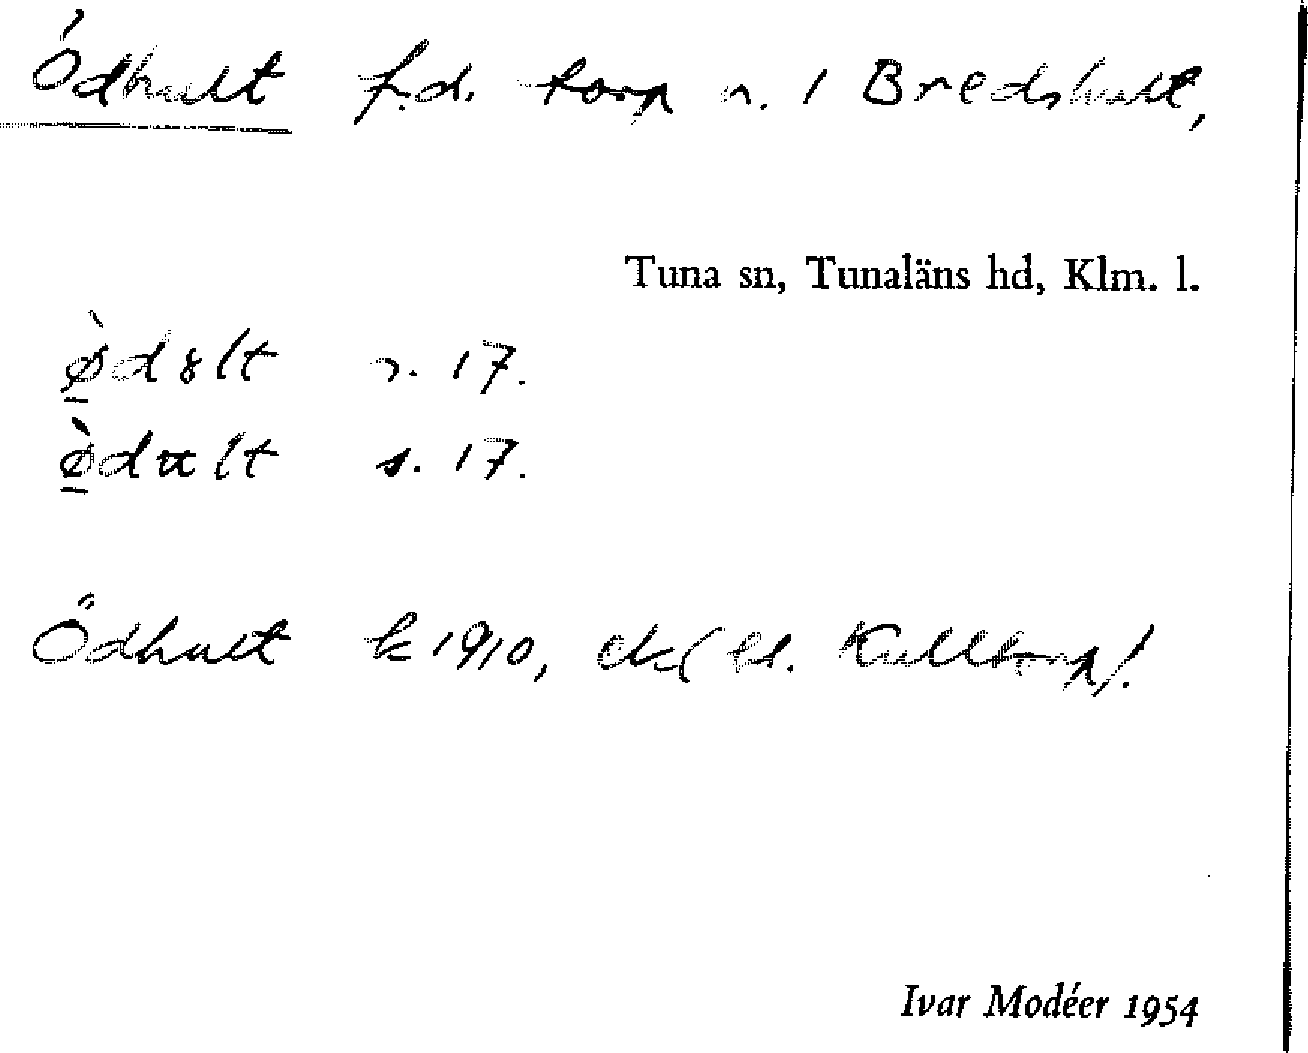 Ödhult f.d. torp n. 1 Bredshult,
Tuna sn, Tunaläns hd, Klm. l.
ø̀dɵlt r. 17.
ø̀dαlt s. 17.
Ödhult k 1910, ekbl. Kulltorp!
Ivar Modéer 1954